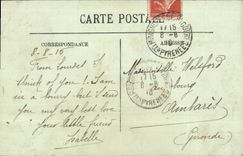 CARTE POSTALE
CORRESPONDANCE
8-8-15
From Lourdes I
think of you. I am
in a hurry but I send
you my very best love
Your little friend
Isabelle
Mademoiselle Welsford
Ambarès
Gironde
17 15
8 - 8
PYRÉNÉES
17 15
8 - 8